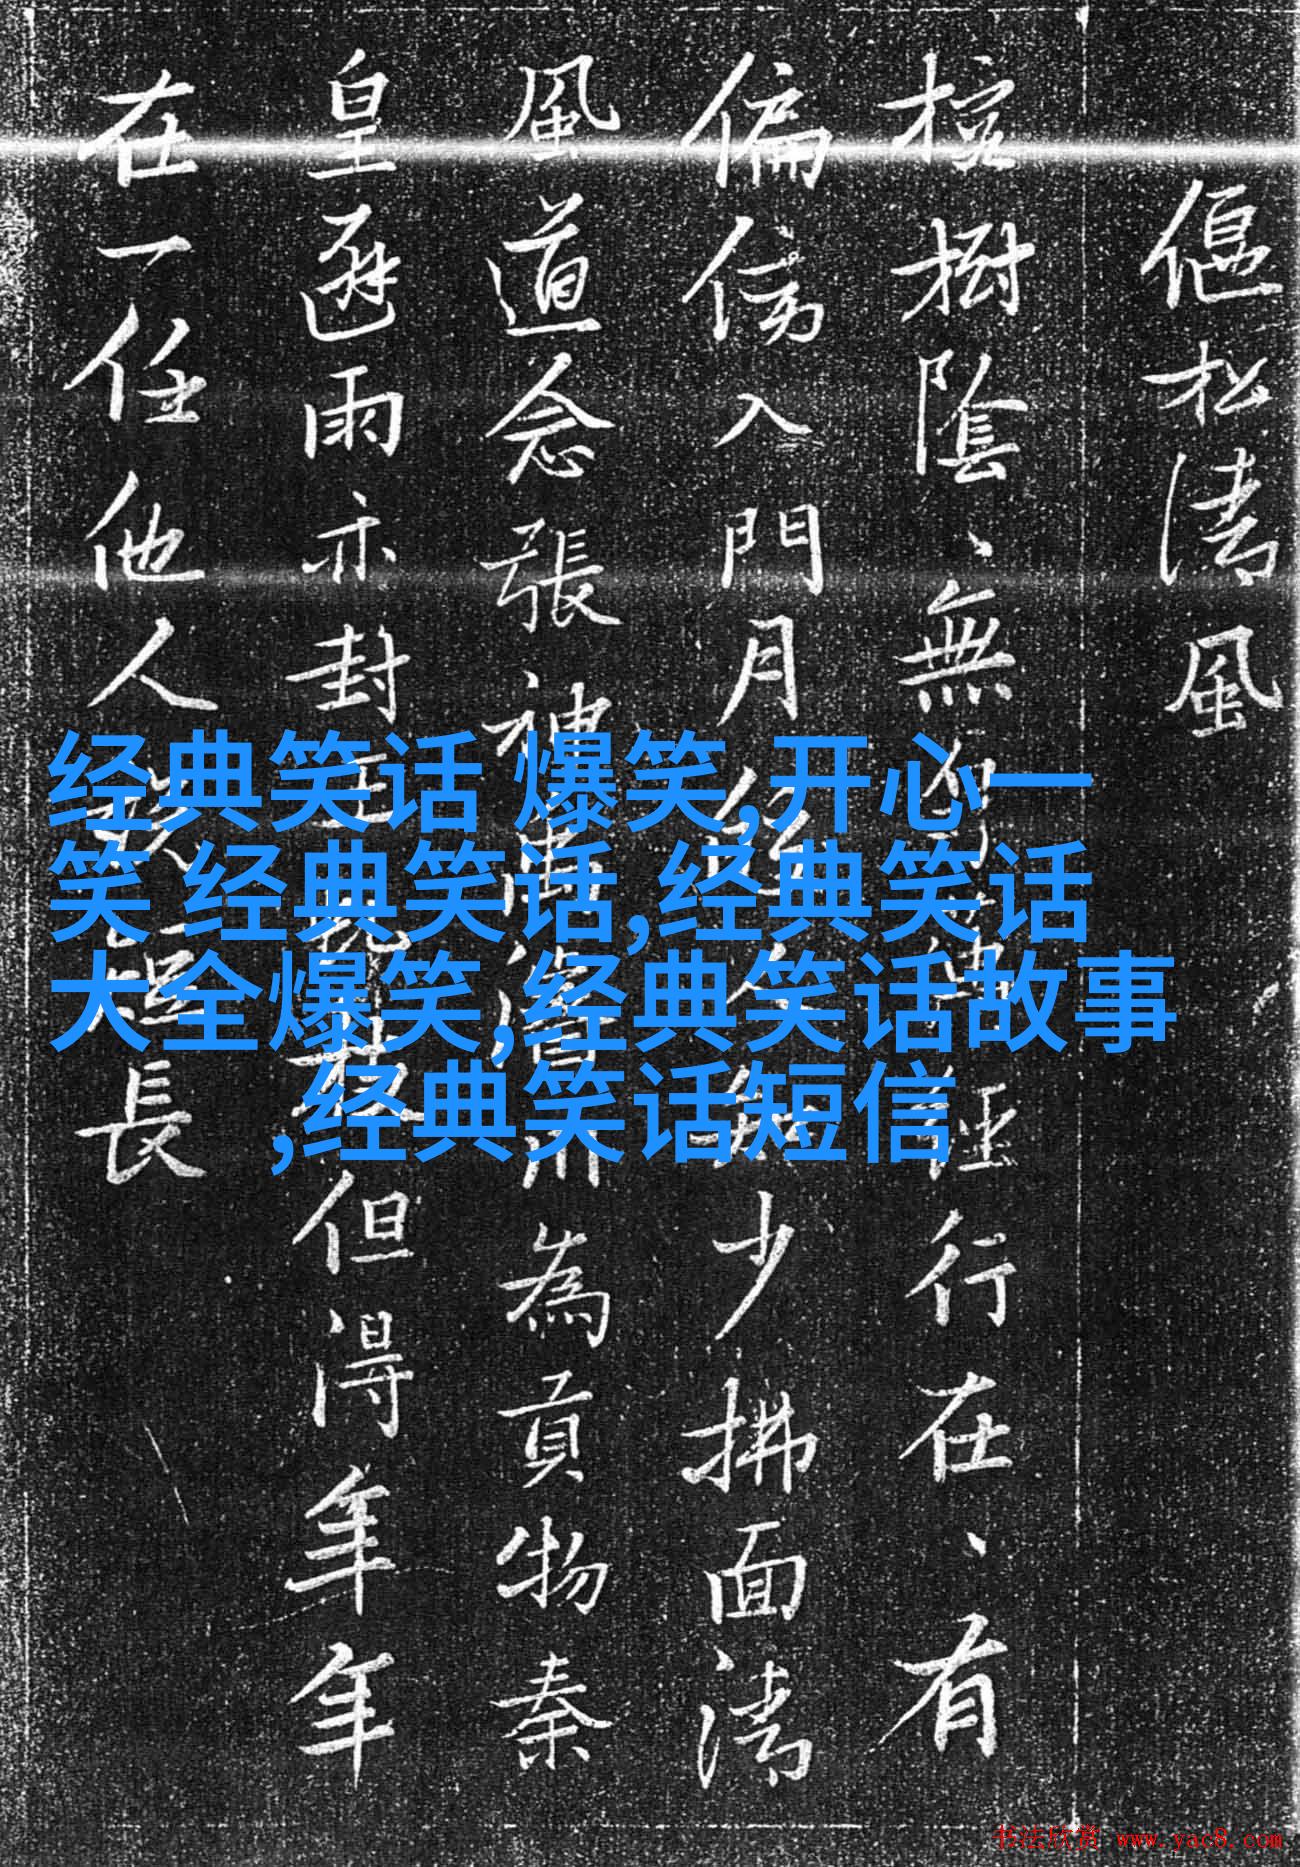 偃松清風
樹陰、無 經行在、有
偏傍入門月 少拂面清
風道念張神 為貢物秦
皇避雨亦封 但得年年
在一任他人 長
经典笑话 爆笑,开心一
笑 经典笑话,经典笑话
大全爆笑,经典笑话故事
,经典笑话短信
书法欣赏 www.yac8.com